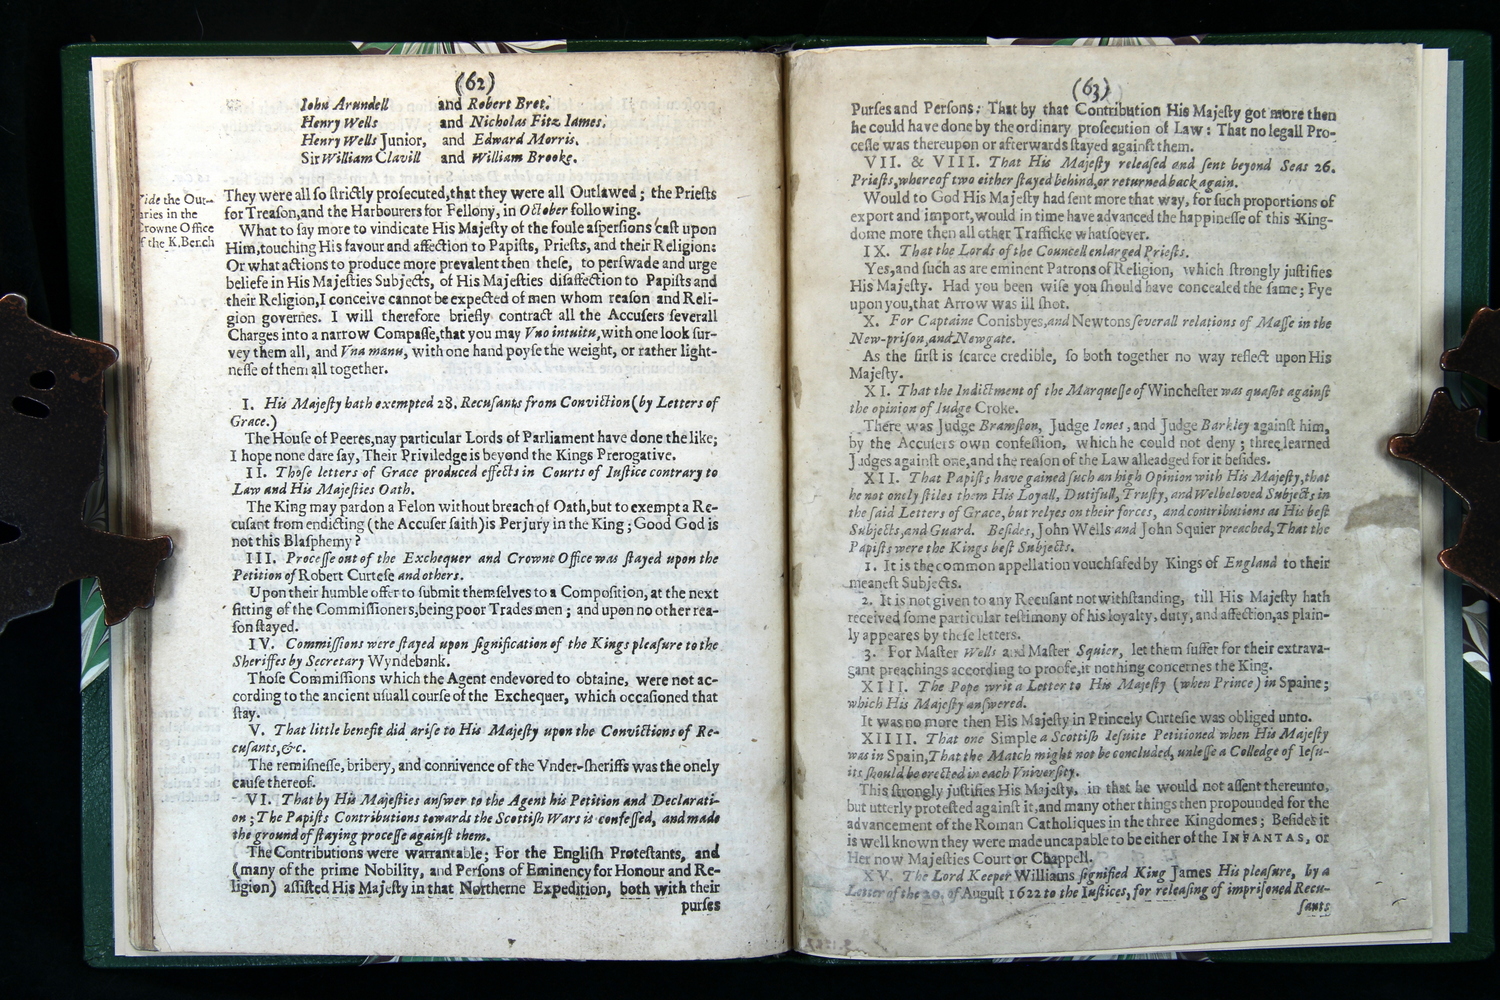 (62)
Iohn Arundell and Robert Bret.
Henry Wells and Nicholas Fitz Iames.
Henry Wells Junior, and Edward Morris.
Sir William Clavill and William Brooke.
They were all so strictly prosecuted, that they were all Outlawed; the Priests
for Treason, and the Harbourers for Fellony, in October following.
Vide the Out-
aries in the
Crowne Office
f the K. Bench
What to say more to vindicate His Majesty of the foule aspersions cast upon
Him, touching His favour and affection to Papists, Priests, and their Religion:
Or what actions to produce more prevalent then these, to perswade and urge
beliefe in His Majesties Subjects, of His Majesties disaffection to Papists and
their Religion, I conceive cannot be expected of men whom reason and Reli-
gion governes. I will therefore briefly contract all the Accusers severall
Charges into a narrow Compasse, that you may Vno intuitu, with one look sur-
vey them all, and Vna manu, with one hand poyse the weight, or rather light-
nesse of them all together.
I. His Majesty hath exempted 28. Recusants from Conviction (by Letters of
Grace.)
The House of Peeres, nay particular Lords of Parliament have done the like;
I hope none dare say, Their Priviledge is beyond the Kings Prerogative.
II. Those letters of Grace produced effects in Courts of Iustice contrary to
Law and His Majesties Oath.
The King may pardon a Felon without breach of Oath, but to exempt a Re-
cusant from endicting (the Accuser saith) is Perjury in the King; Good God is
not this Blasphemy?
III. Processe out of the Exchequer and Crowne Office was stayed upon the
Petition of Robert Curtese and others.
Upon their humble offer to submit themselves to a Composition, at the next
sitting of the Commissioners, being poor Trades men; and upon no other rea-
son stayed.
IV. Commissions were stayed upon signification of the Kings pleasure to the
Sheriffes by Secretary Wyndebank.
Those Commissions which the Agent endevored to obtaine, were not ac-
cording to the ancient usuall course of the Exchequer, which occasioned that
stay.
V. That little benefit did arise to His Majesty upon the Convictions of Re-
cusants, &c.
The remisnesse, bribery, and connivence of the Vnder-sheriffs was the onely
cause thereof.
VI. That by His Majesties answer to the Agent his Petition and Declarati-
on; The Papists Contributions towards the Scottish Wars is confessed, and made
the ground of staying processe against them.
The Contributions were warrantable; For the English Protestants, and
(many of the prime Nobility, and Persons of Eminency for Honour and Re-
ligion) assisted His Majesty in that Northerne Expedition, both with their
purses
(63)
Purses and Persons: That by that Contribution His Majesty got more then
he could have done by the ordinary prosecution of Law: That no legall Pro-
cesse was thereupon or afterwards stayed against them.
VII. & VIII. That His Majesty released and sent beyond Seas 26.
Priests, whereof two either stayed behind, or returned back again.
Would to God His Majesty had sent more that way, for such proportions of
export and import, would in time have advanced the happinesse of this King-
dome more then all other Trafficke whatsoever.
IX. That the Lords of the Councell enlarged Priests.
Yes, and such as are eminent Patrons of Religion, which strongly justifies
His Majesty. Had you been wise you should have concealed the same; Fye
upon you, that Arrow was ill shot.
X. For Captaine Conisbyes, and Newtons severall relations of Masse in the
New-prison, and Newgate.
As the first is scarce credible, so both together no way reflect upon His
Majesty.
XI. That the Indictment of the Marquesse of Winchester was quasht against
the opinion of Iudge Croke.
There was Judge Bramston, Judge Iones, and Judge Barkley against him,
by the Accusers own confession, which he could not deny; three learned
Judges against one, and the reason of the Law alleadged for it besides.
XII. That Papists have gained such an high Opinion with His Majesty, that
he not onely stiles them His Loyall, Dutifull, Trusty, and Welbeloved Subjects in
the said Letters of Grace, but relyes on their forces, and contributions as His best
Subjects, and Guard. Besides, John Wells and John Squier preached, That the
Papists were the Kings best Subjects.
1. It is the common appellation vouchsafed by Kings of England to their
meanest Subjects.
2. It is not given to any Recusant notwithstanding, till His Majesty hath
received some particular testimony of his loyalty, duty, and affection, as plain-
ly appeares by these letters.
3. For Master Wells and Master Squier, let them suffer for their extrava-
gant preachings according to proofe, it nothing concernes the King.
XIII. The Pope writ a Letter to His Majesty (when Prince) in Spaine;
which His Majesty answered.
It was no more then His Majesty in Princely Curtesie was obliged unto.
XIIII. That one Simple a Scottish Iesuite Petitioned when His Majesty
was in Spain, That the Match might not be concluded, unlesse a Colledge of Iesu-
its should be erected in each Vniversity.
This strongly justifies His Majesty, in that he would not assent thereunto,
but utterly protested against it, and many other things then propounded for the
advancement of the Roman Catholiques in the three Kingdomes; Besides it
is well known they were made uncapable to be either of the INFANTAS, or
Her now Majesties Court or Chappell.
XV. The Lord Keeper Williams signified King James His pleasure, by a
Letter of the 20. of August 1622 to the Iustices, for releasing of imprisoned Recu-
sants